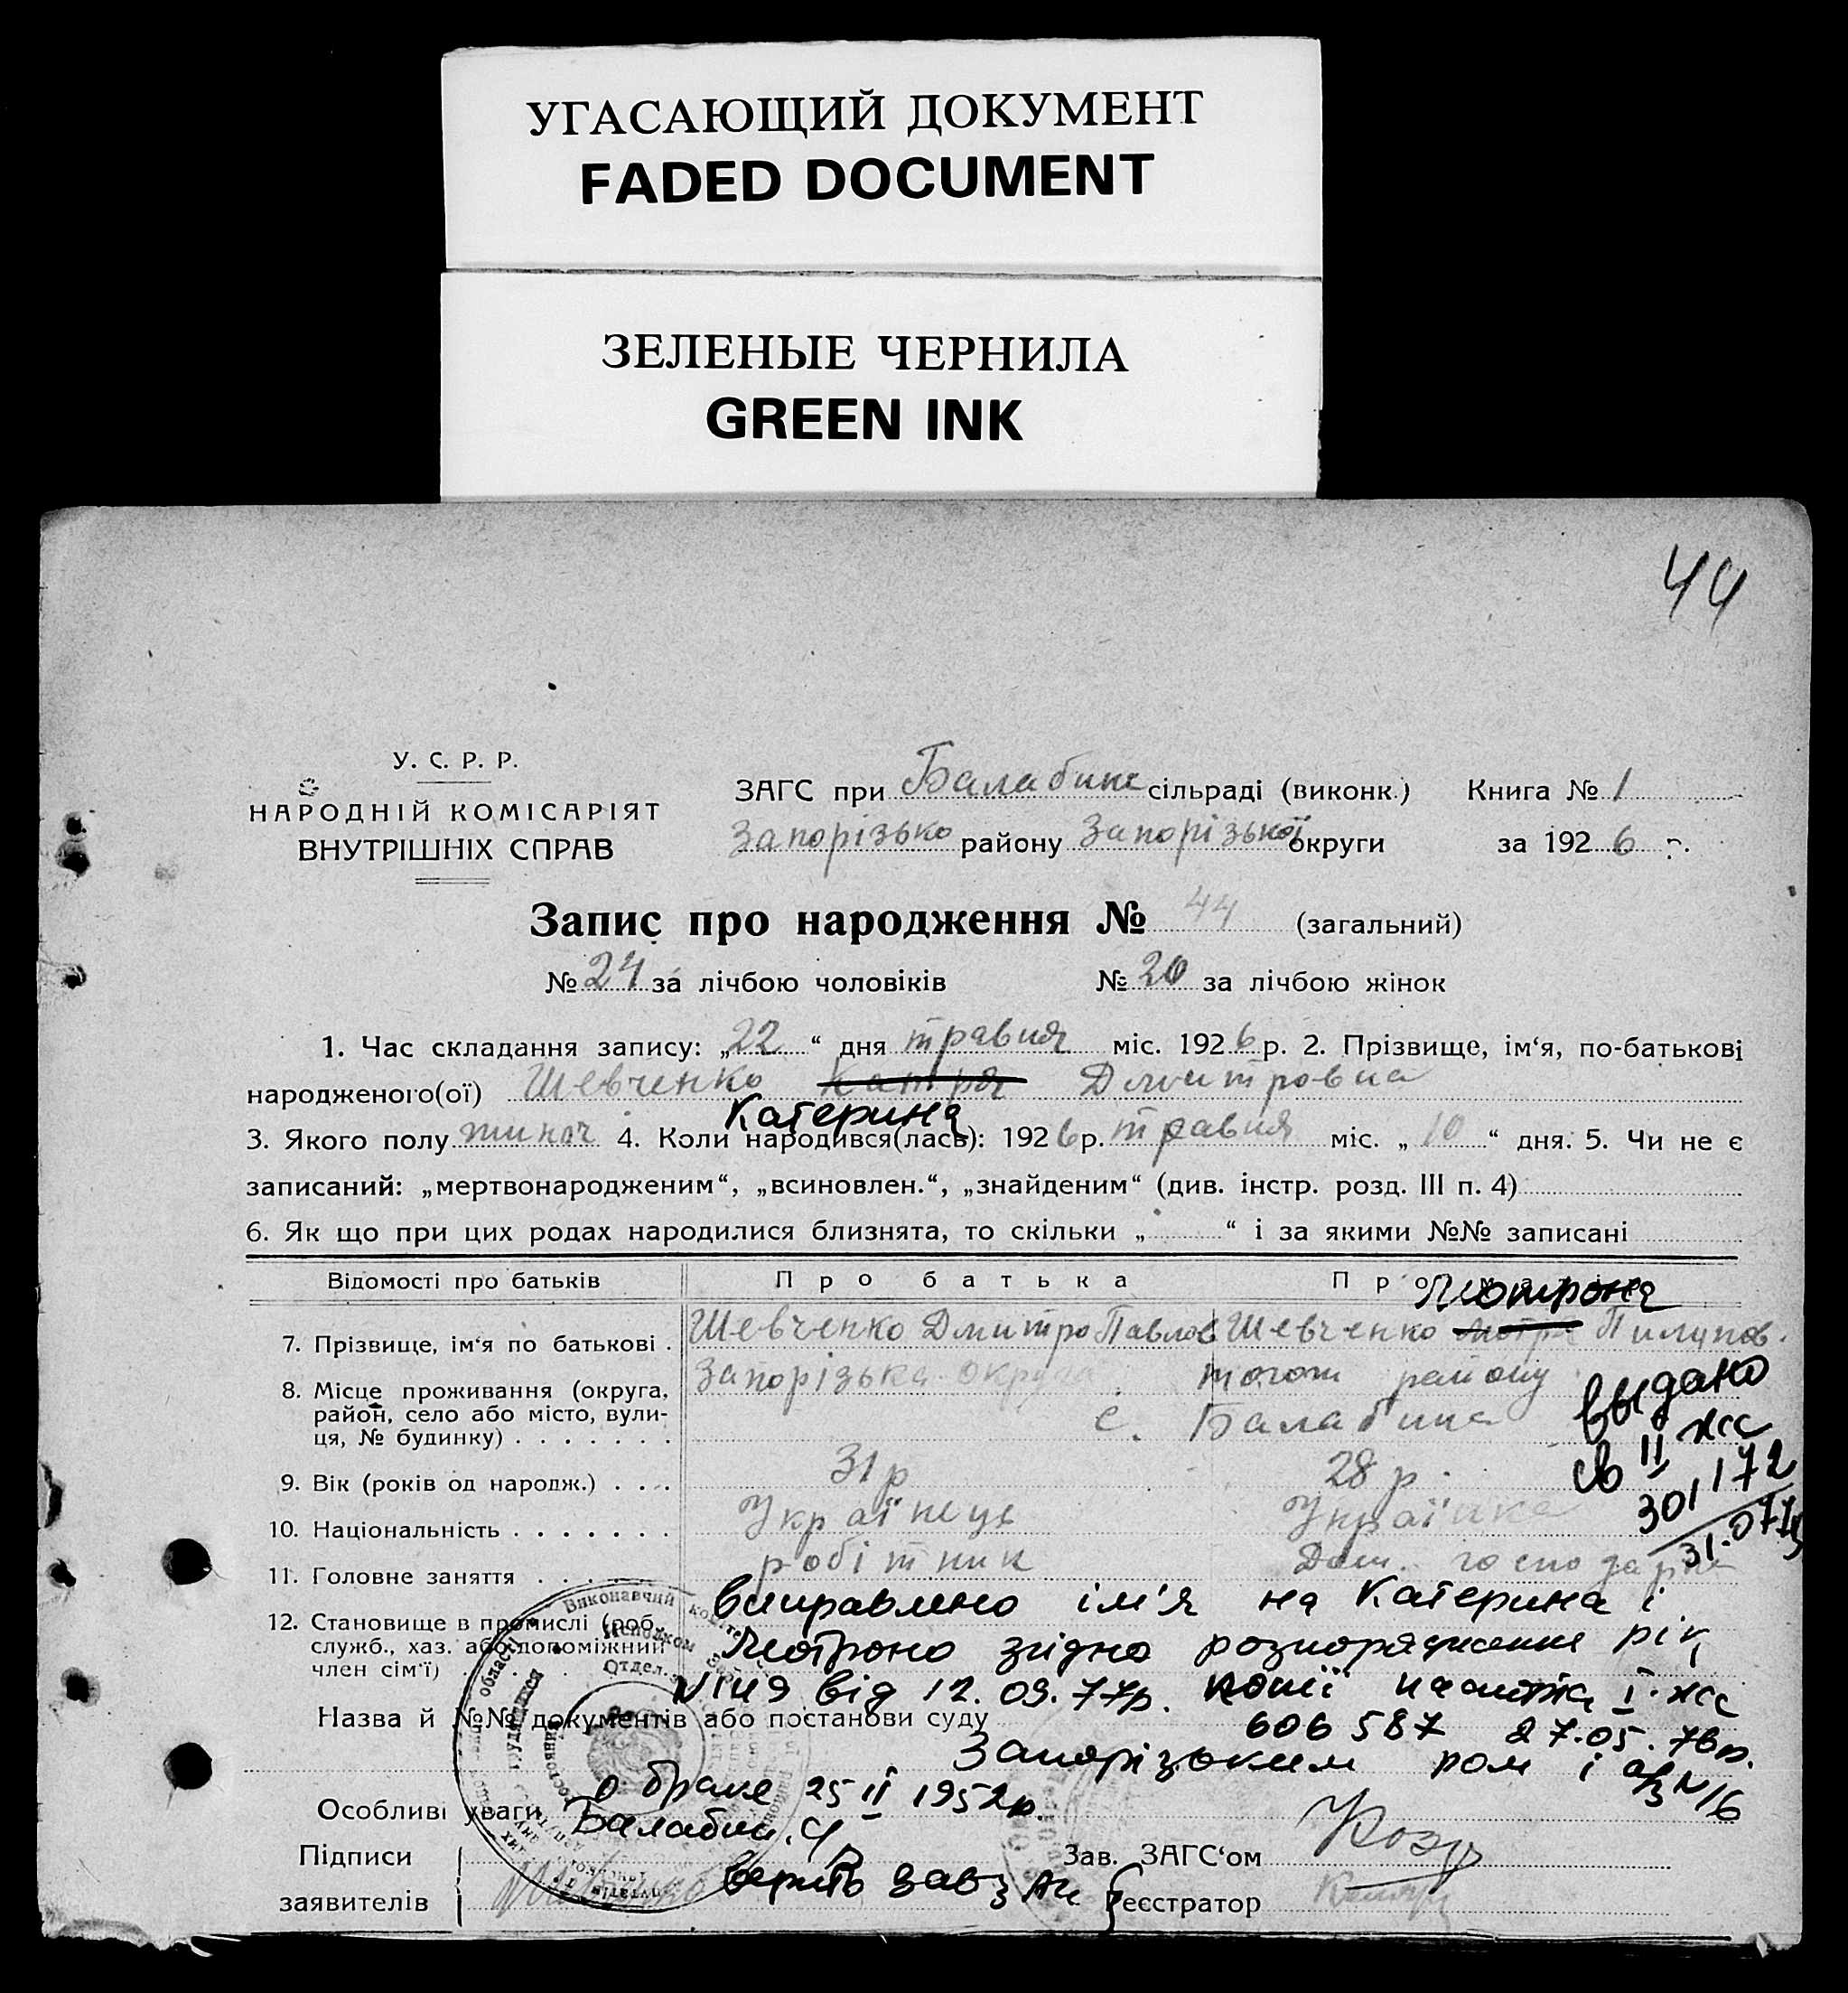 УГАСАЮЩИЙ ДОКУМЕНТ
FADED DOCUMENT
ЗЕЛЕНЫЕ ЧЕРНИЛА
GREEN INK
44
У. С. Р. Р.
НАРОДНІЙ КОМІСАРІЯТ
ВНУТРІШНІХ СПРАВ
ЗАГС при Балабине сільраді (виконк.) Книга № 1
Запорізько району Запорізької округи за 1926 р.
Запис про народження № 44 (загальний)
№ 24 за лічбою чоловіків № 20 за лічбою жінок
1. Час складання запису: „22“ дня травня міс. 1926 р. 2. Прізвище, ім‘я, по-батькові
народженого(ої) Шевченко Катря Дмитровна
Катерина
3. Якого полу жиноч 4. Коли народився(лась): 1926 р. травня міс. „10“ дня. 5. Чи не є
записаний: „мертвонародженим“, „всиновлен.“, „знайденим“ (див. інстр. розд. III п. 4)
6. Як що при цих родах народилися близнята, то скільки „ “ і за якими №№ записані
Відомості про батьків Про батька Про
Мотрона
7. Прізвище, ім‘я по батькові . Шевченко Дмитро Павлов Шевченко Мотря Пилипов.
8. Місце проживання (округа, Запорізька округа тогож району
район, село або місто, вули- с. Балабина
ця, № будинку) . . . . . . .
выдано
св II жс
301172
31.07
9. Вік (років од народж.) . . . 31 р 28 р.
10. Національність . . . . . . . Українець Українка
11. Головне заняття . . . . . . робітник Дом. господарка
12. Становище в промислі (роб.,
служб., хаз. або допоміжний
член сім‘ї)
виправлено ім'я на Катерина і
Мотрона згідно розпорядження
від 12.09.77р. копії I-жс
606587 27.05.76р.
Назва й №№ документів або постанови суду
Запорізьким №16
о браке 25 II 1952р.
Особливі уваги Балабин.
Підписи Зав. ЗАГС‘ом
заявителів верить Реєстратор
Виконавчий
Исполком
Отдел